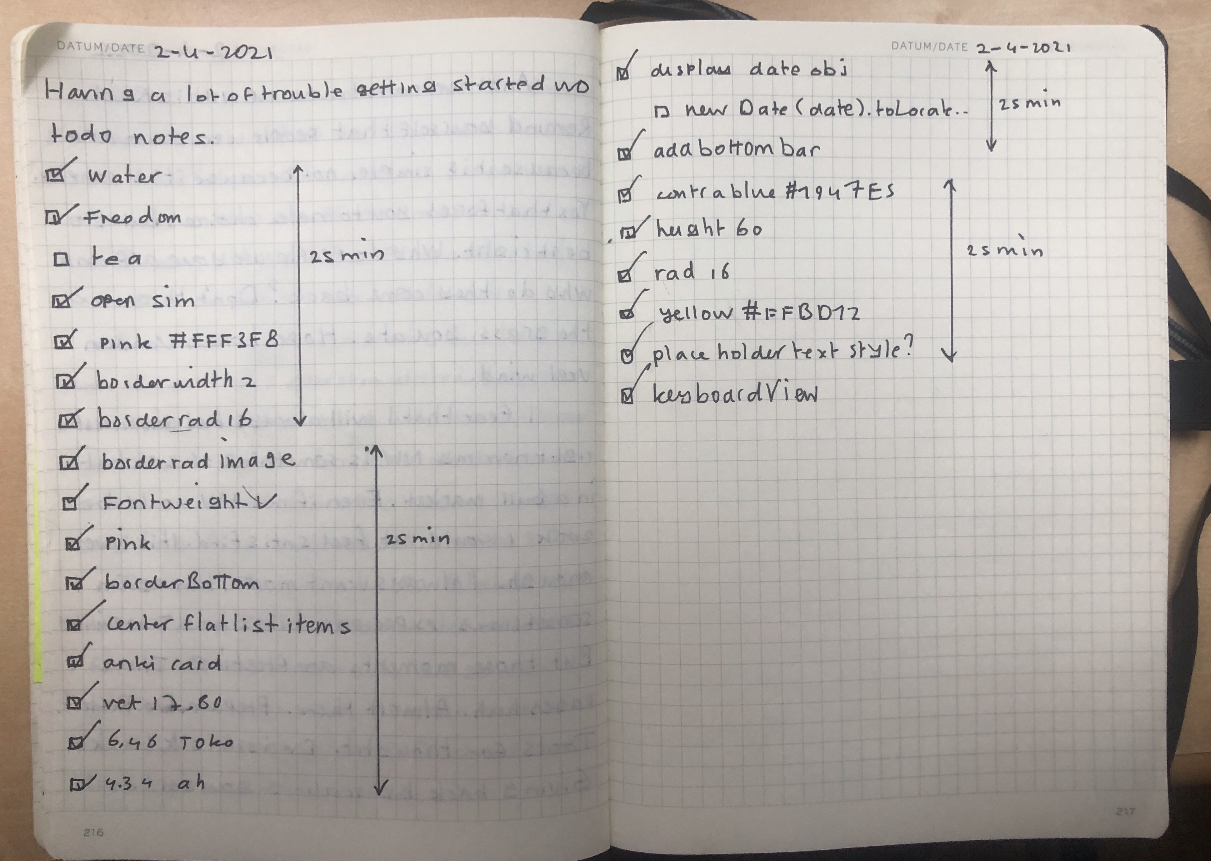 DATUM/DATE 2-4-2021
Having a lot of trouble getting started wo
todo notes.
Water
Freedom
tea
25 min
open sim
Pink #FFF3F8
borderwidth 2
borderrad 16
borderrad image
Fontweight
Pink
25 min
borderBottom
center flatlist items
anki card
vet 17.80
6,46 Toko
4.34 ah
216
DATUM/DATE 2-4-2021
display date obj
new Date(date).toLocale..
25 min
add bottom bar
contra blue #1947E5
height 60
25 min
rad 16
yellow #FFBD12
place holder text style?
keyboardView
217